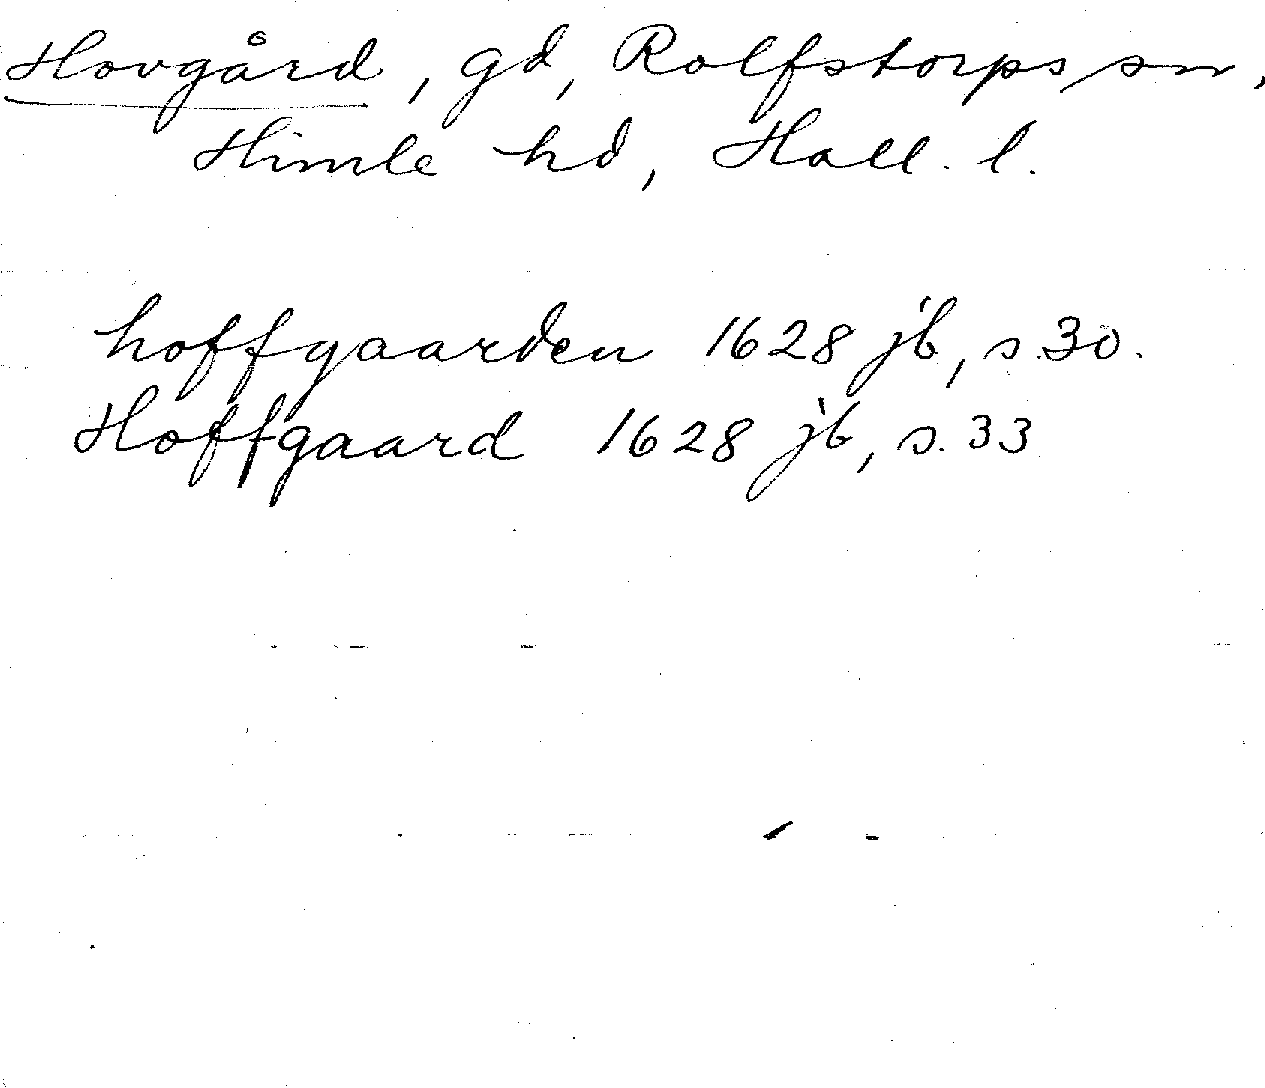 Hovgård, gd, Rolfstorps sn,
Himle hd, Hall. l.
hoffgaarden 1628 jb, s. 30.
Hoffgaard 1628 jb, s. 33